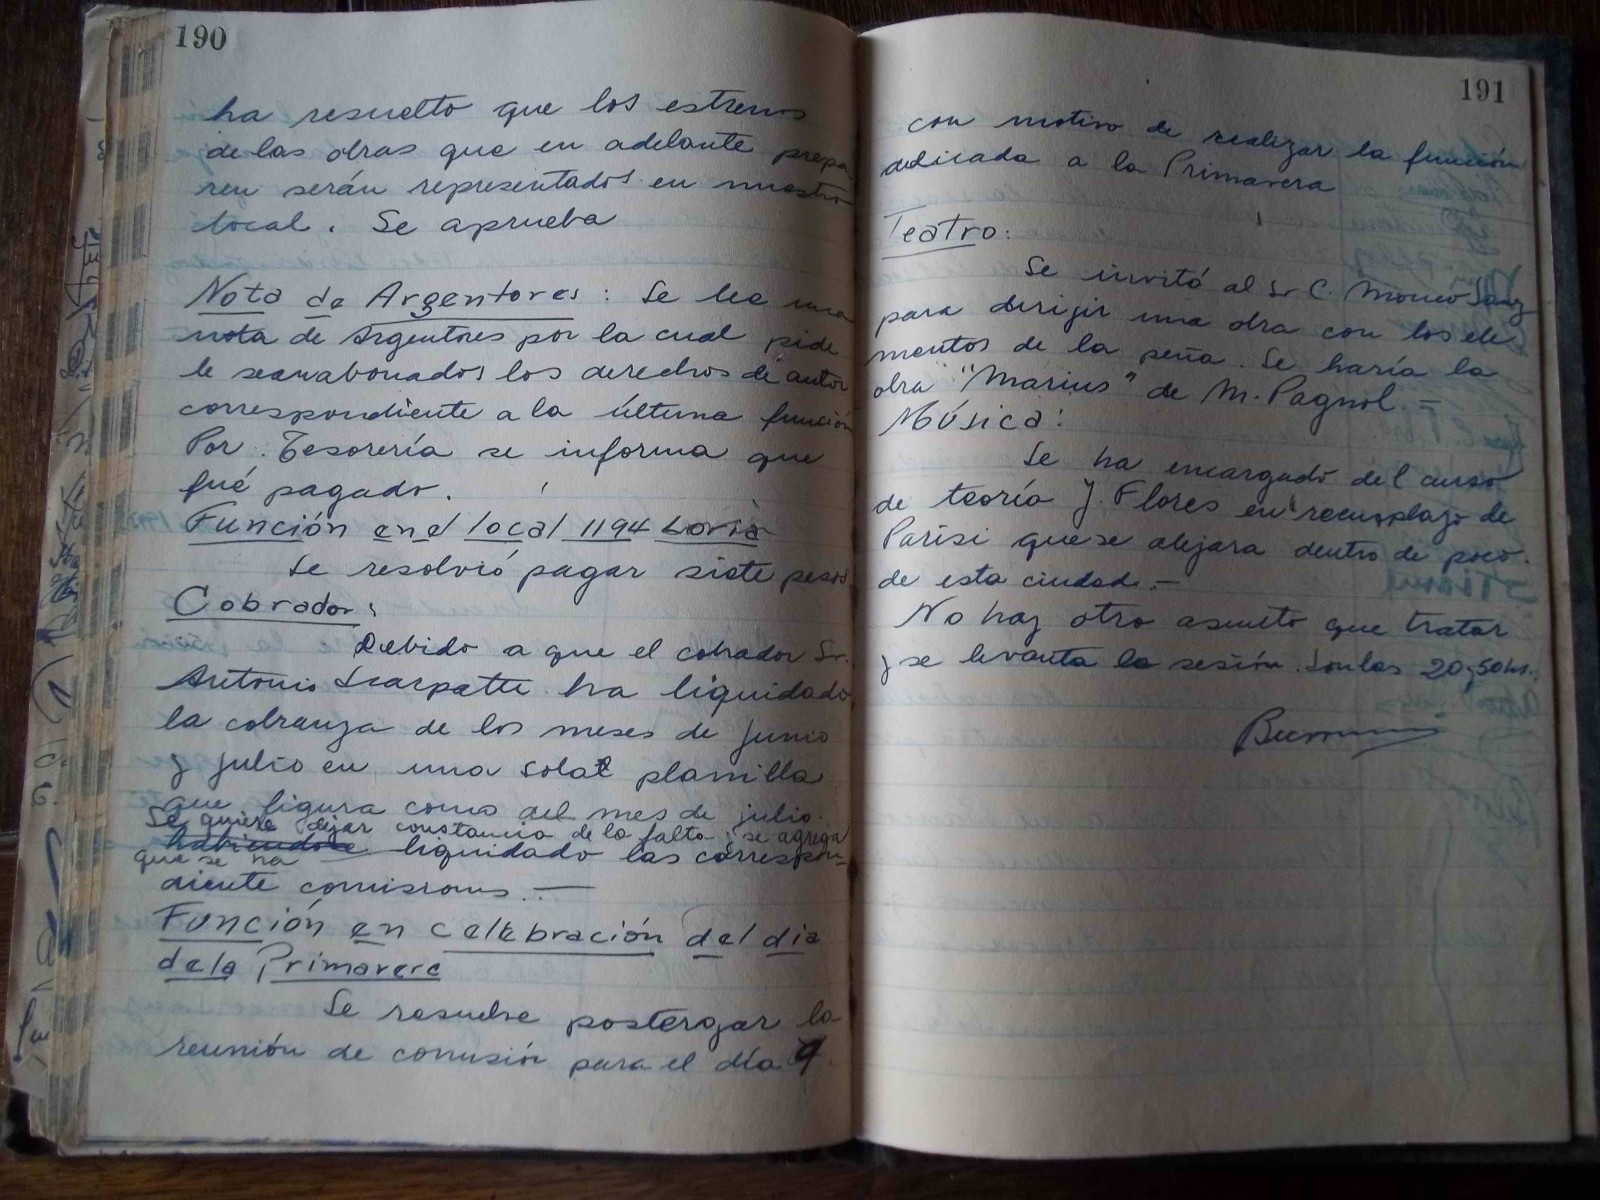 190
ha resuelto que los estrenos
de las obras que en adelante prepa
ren serán representados en nuestro
local. Se aprueba
Nota de Argentores: Se lee una
nota de Argentores por la cual pide
le sean abonados los derechos de autor
correspondiente a la última función
Por Tesorería se informa que
fué pagado.
Función en el local 1194 Loria
Se resolvió pagar siete pesos
Cobrador:
Debido a que el cobrador Sr.
Antonio Scarpatti ha liquidado
la cobranza de los meses de junio
y julio en una sola planilla
que figura como del mes de julio.
Se quiere dejar constancia de la falta; se agrega
que se ha habiendose liquidado las correspon-
diente comisiones.—
Función en celebración del dia
de la Primavera
Se resuelve postergar la
reunión de comisión para el día 9
191
con motivo de realizar la función
dedicada a la Primavera
Teatro:
Se invitó al Sr C. Moneo Sanz
para dirijir una obra con los ele
mentos de la peña. Se haría la
obra "Marius" de M. Pagnol.—
Música:
Se ha encargado del curso
de teoría J. Flores en reemplazo de
Parisi que se alejara dentro de poco
de esta ciudad.—
No hay otro asunto que tratar
y se levanta la sesión. Son las 20 y 50 hs.